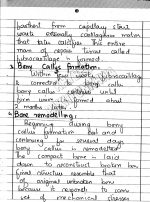 fibroblast from capillary
wants externally cartilaginous matrix
that take calcify. This entire
mass of repair tissue called
fibrocartilage is formed.
3. Bony Callus formation.
Within few weeks fibrocartilage
is converted to bony callus
bony callus continue until
firm were is formed about
2 months later.
4. Bone remodelling:
Beginning during bony
callus formation and
continuing for several days
bony callus is remodelled
The compact bone is laid
down to reconstruct broken bone
final structure resemble that
of original unbroken bone
because it responds to same
set of mechanical stresses